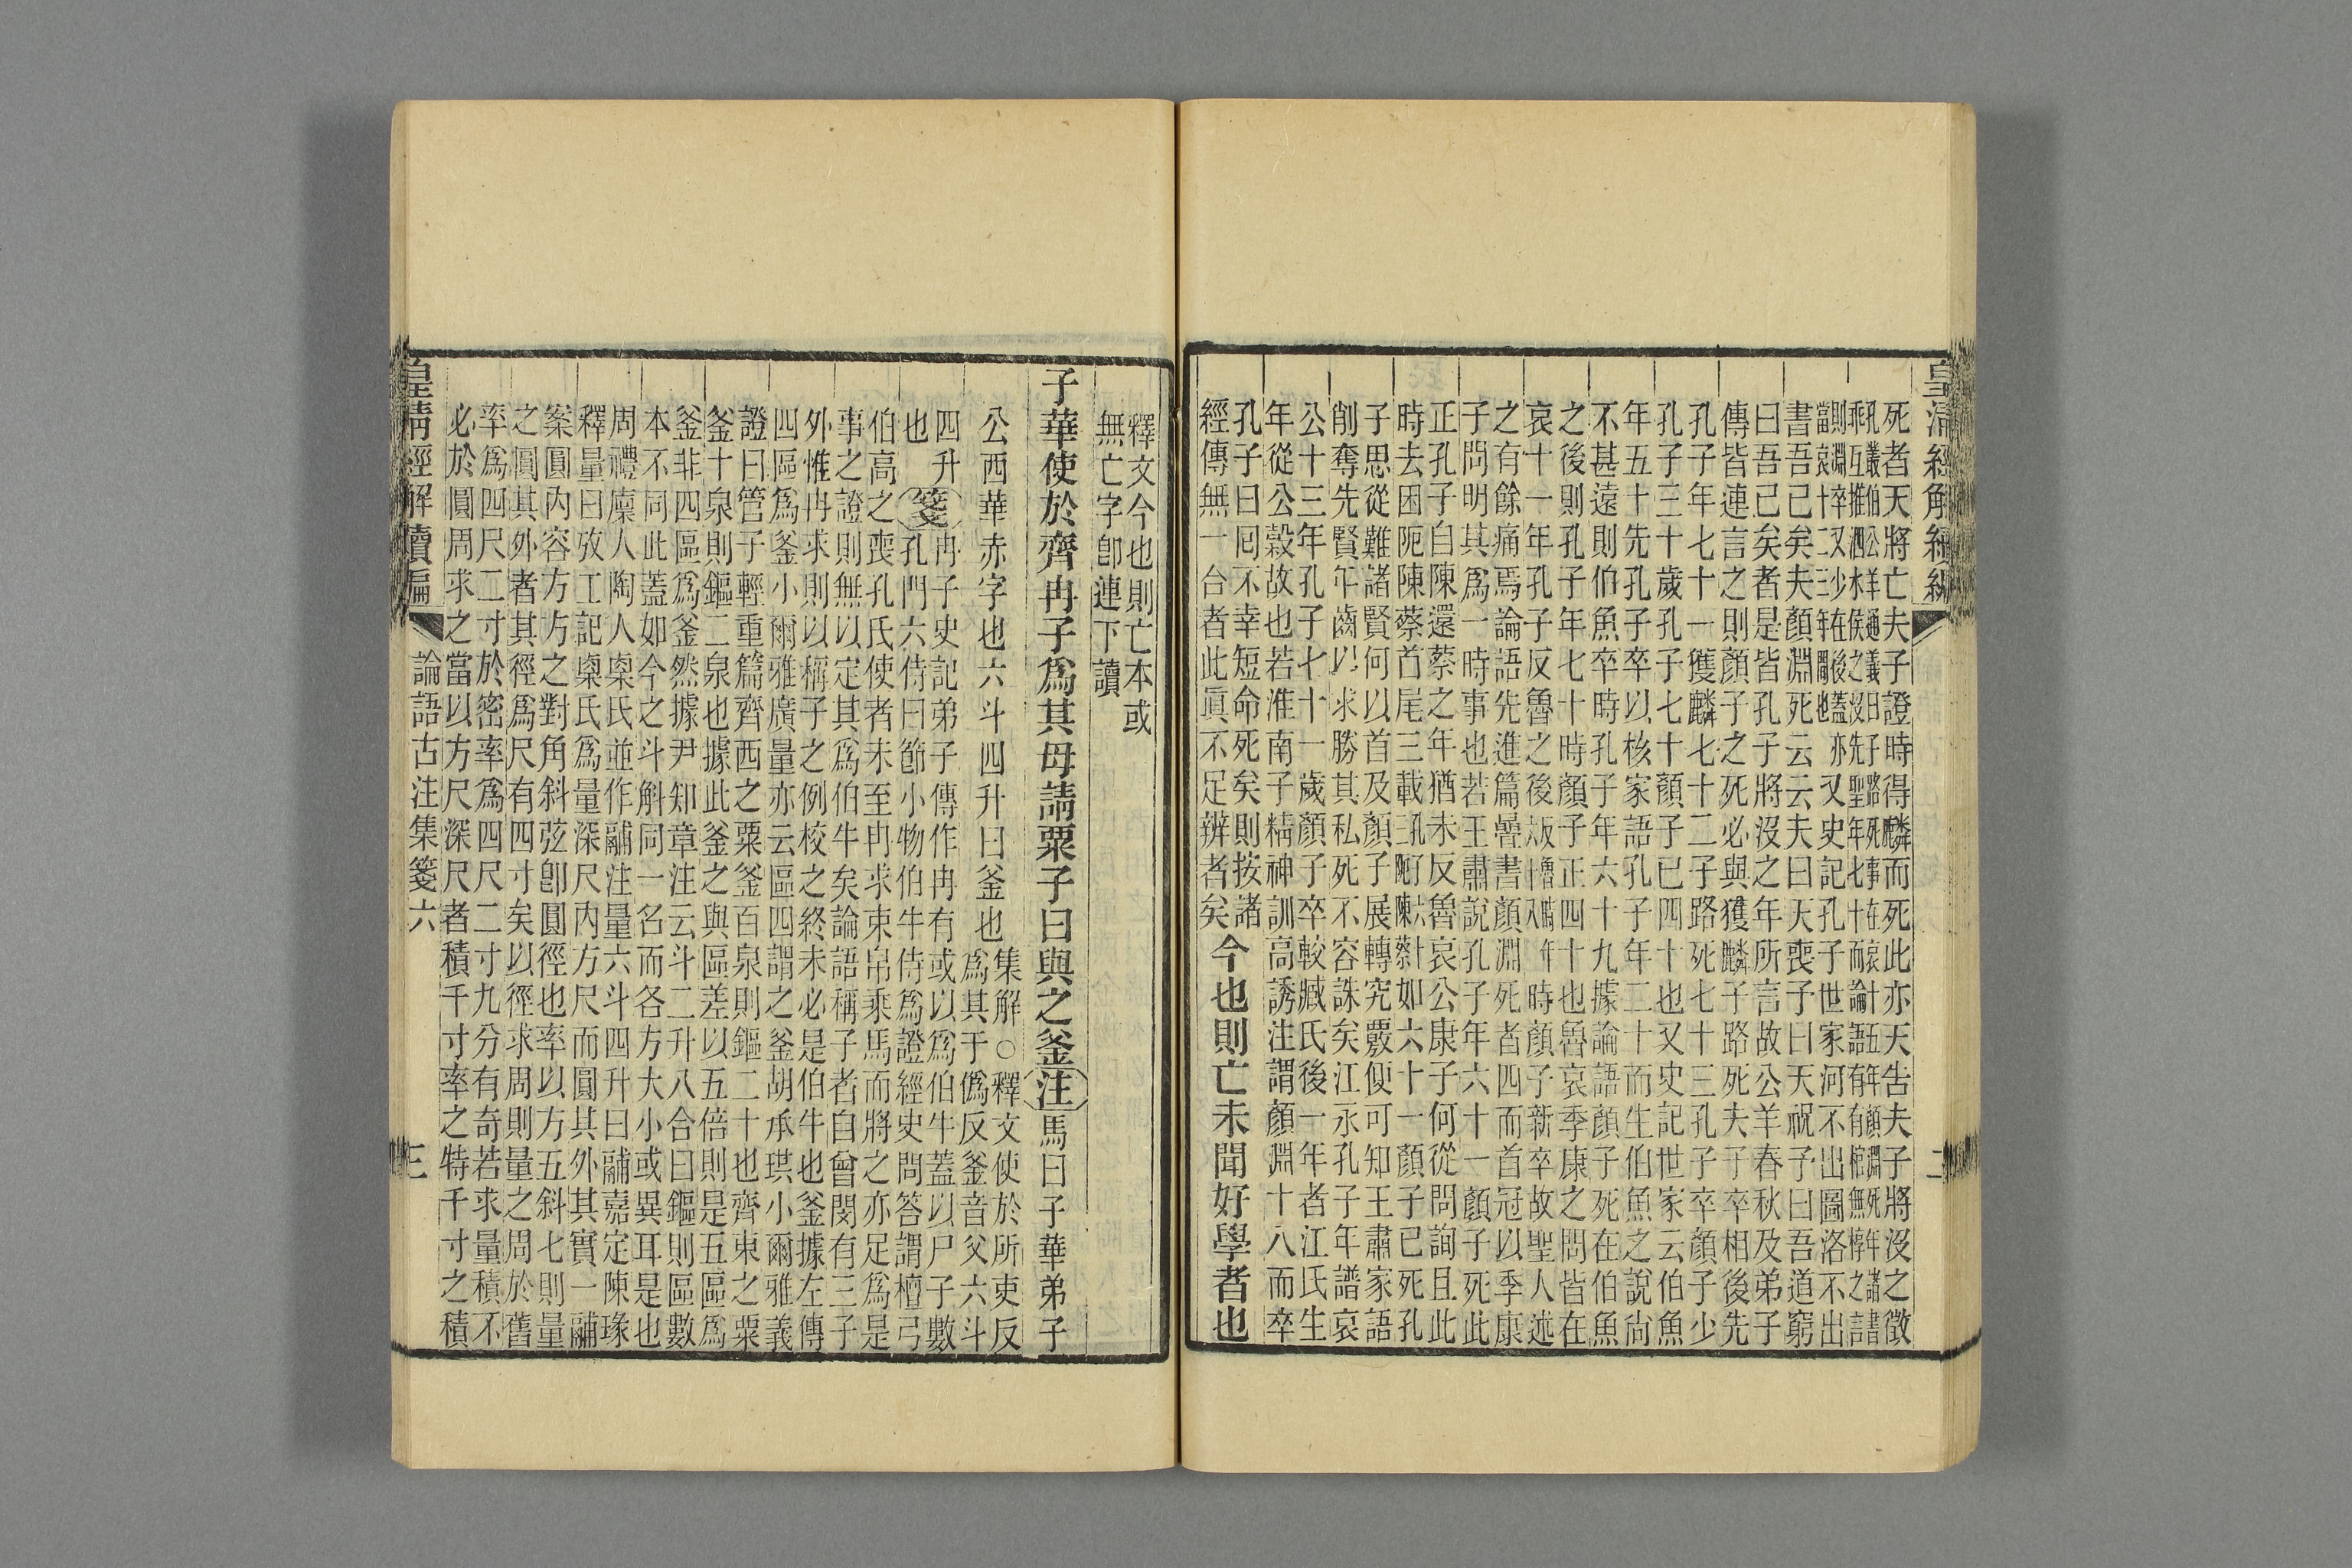 皇清經解續編
死者天將亡夫子證時得麟而死此亦天告夫子將沒之徵
書吾已矣夫顏淵死云云夫曰天喪子曰天祝予曰吾道窮
曰吾已矣者是皆孔子將沒之年所言故公羊春秋及弟子
傳皆連言之則顏子之死必與獲麟子路死夫子卒相後先
孔子年七十一獲麟七十二子路死七十三孔子卒顏子少
孔子三十歲孔子七十顏子已四十也又史記世家云伯魚
年五十先孔子卒以核家語孔子年二十而生伯魚之說尚
不甚遠則伯魚卒時孔子年六十九據論語顏子死在伯魚
之後則孔子年七十時顏子正四十也魯哀季康之問皆在
之有餘痛焉論語先進篇魯書顏淵死者四而首冠以季康
子問明其爲一時事也若王肅說孔子年六十一顏子死此
正孔子自陳還蔡之年猶未反魯哀公康子何從問詢且此
時去困阨陳蔡首尾三載
子思從難諸賢何以首及顏子展轉究覈便可知王肅家語
削奪先賢年齒以求勝其私死不容誅矣江永孔子年譜哀
公十三年孔子七十一歲顏子卒較臧氏後一年者江氏生
年從公穀故也若淮南子精神訓高誘注謂顏淵十八而卒
孔子曰回不幸短命死矣則按諸
經傳無一合者此眞不足辨者矣
今也則亡未聞好學者也
釋文今也則亡本或
無亡字卽連下讀
子華使於齊冉子爲其母請粟子曰與之釜注馬曰子華弟子
公西華赤字也六斗四升曰釜也
集解○釋文使於所吏反
爲其于僞反釜音父六斗
四升
也
箋冉子史記弟子傳作冉有或以爲伯牛蓋以尸子數
孔門六侍曰節小物伯牛侍爲證經史問答謂檀弓
伯高之喪孔氏使者未至冉求束帛乘馬而將之亦足爲是
事之證則無以定其爲伯牛矣論語稱子者自曾閔有三子
外惟冉求則以稱子之例校之終未必是伯牛也釜據左傳
四區爲釜小爾雅廣量亦云區四謂之釜胡承珙小爾雅義
證曰管子輕重篇齊西之粟釜百泉則鏂二十也齊東之粟
釜十泉則鏂二泉也據此釜之與區差以五倍則是五區爲
釜非四區爲釜然據尹知章注云斗二升八合曰鏂則區數
本不同此蓋如今之斗斛同一名而各方大小或異耳是也
周禮廩人陶人㮚氏並作鬴注量六斗四升曰鬴嘉定陳瑑
釋量曰攷工記㮚氏爲量深尺內方尺而圜其外其實一鬴
案圓內容方方之對角斜弦卽圓徑也率以方五斜七則量
之圓其外者其徑爲尺有四寸矣以徑求周則量之周於舊
率爲四尺二寸於密率爲四尺二寸九分有奇若求量積不
必於圓周求之當以方尺深尺者積千寸率之特千寸之積
皇清經解續編
論語古注集箋六
三